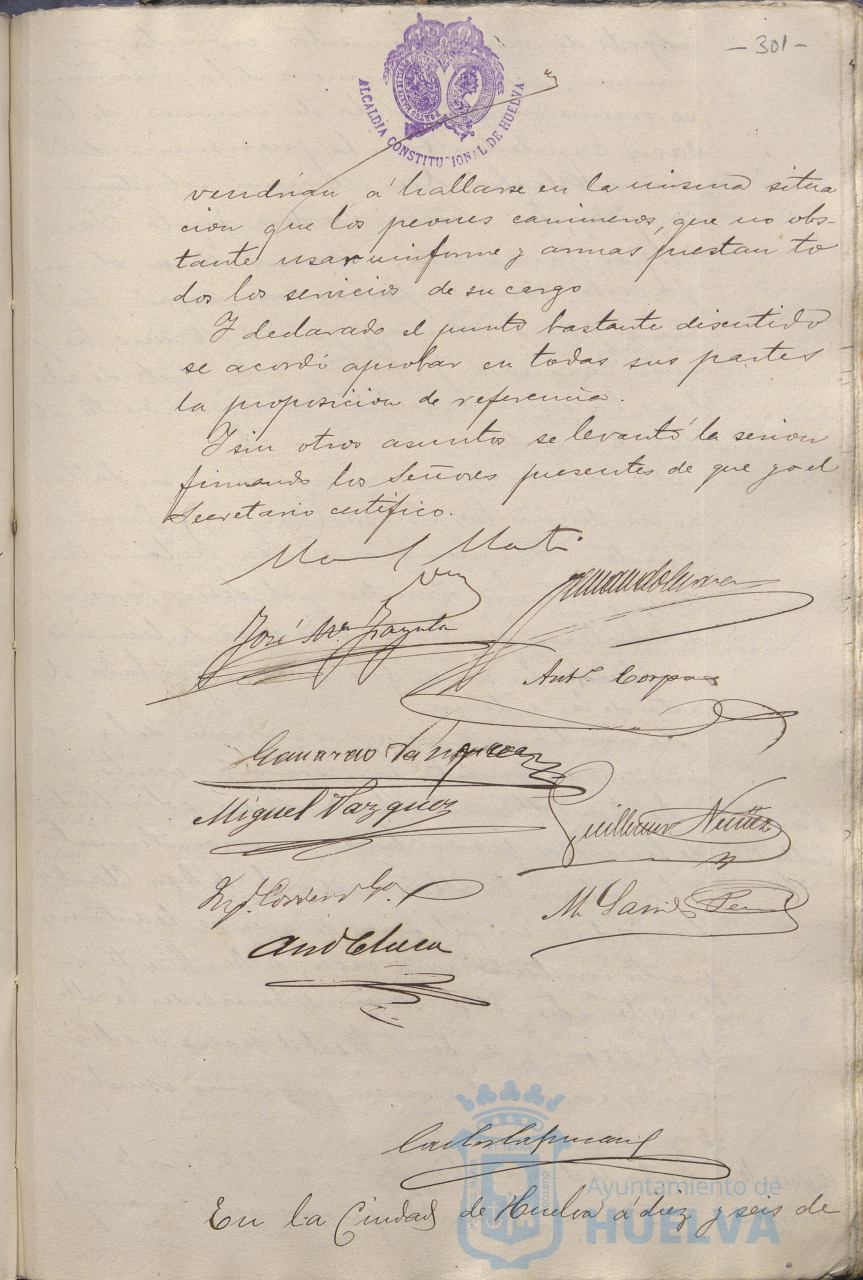 - 301 -
ALCALDIA CONSTITUCIONAL DE HUELVA
vendrian á hallarse en la misma situa
cion que los peones camineros, que no obs-
tante usar uniforme y armas prestan to
dos los servicios de su cargo
Y declarado el punto bastante discutido
se acordó aprobar en todas sus partes
la proposicion de referencia.
Y sin otros asuntos se levantó la sesion
firmando los Señores presentes de que yo el
Secretario certifico.
José Mª
Antº Corpas
Vazquez
Miguel Vazquez
Guillermo Nuñez
Ayuntamiento de
HUELVA
En la Ciudad de Huelva á diez y seis de